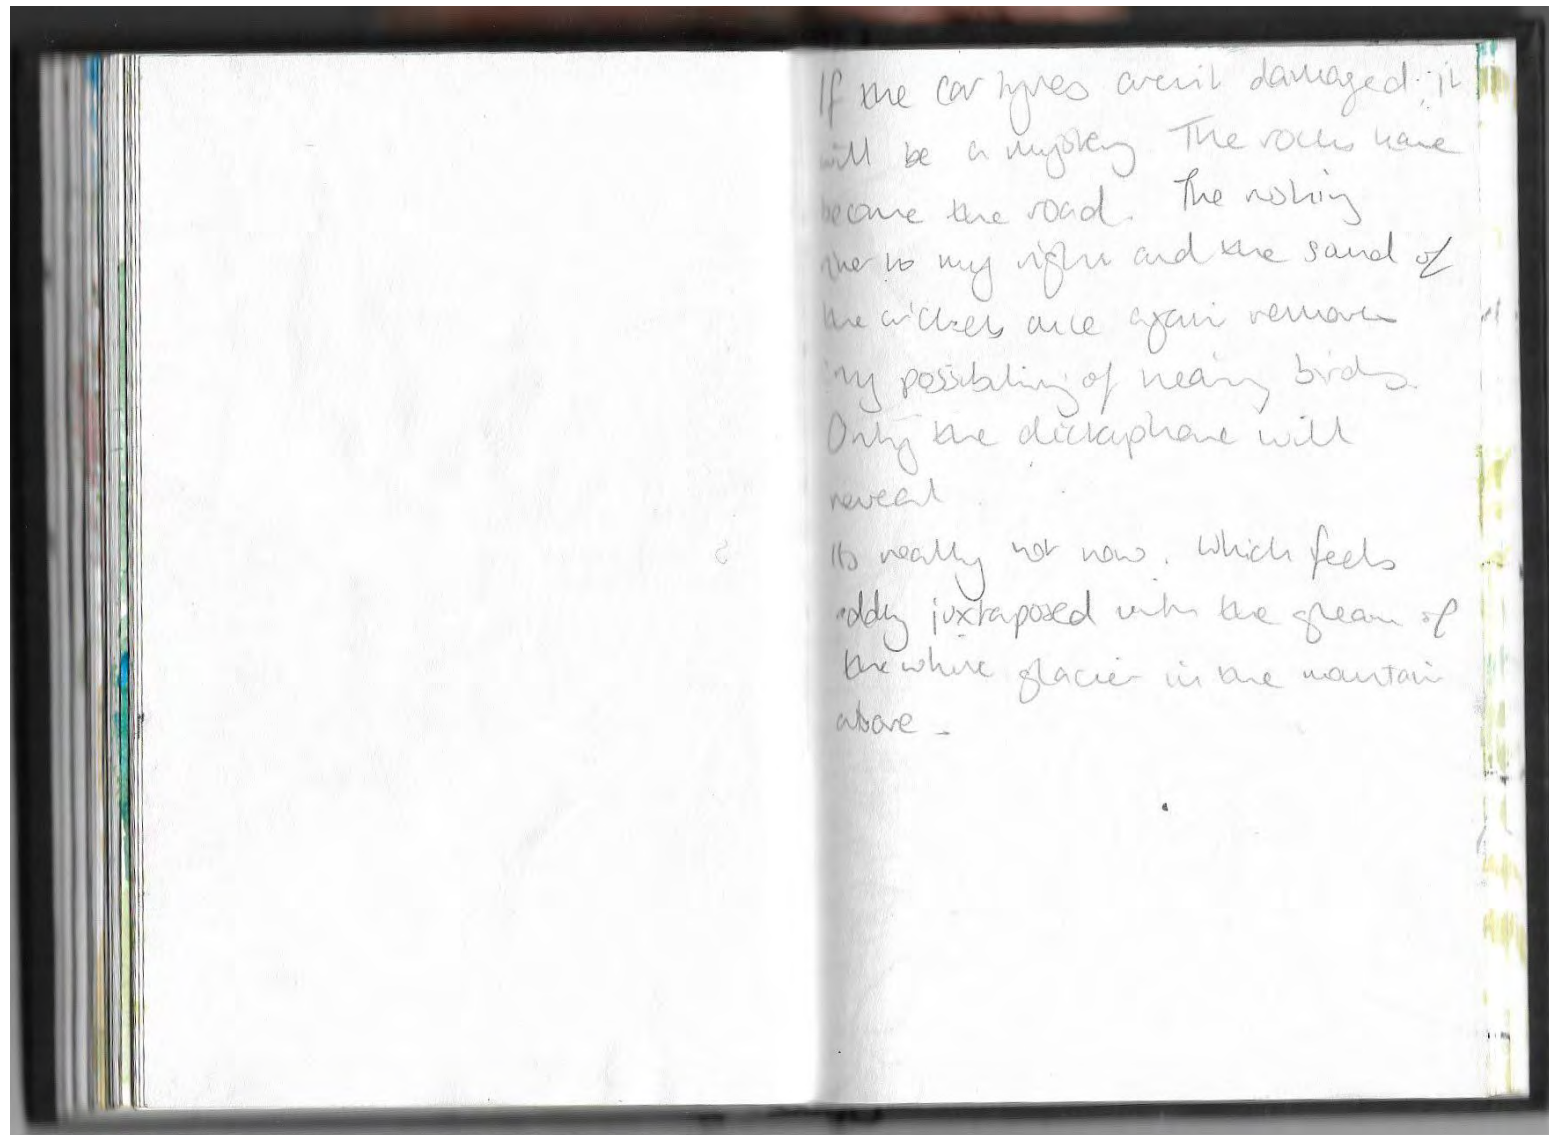 If the car tyres aren't damaged it
will be a mystery The rocks have
become the road. The rushing
river to my right and the sound of
the crickets once again remove
my possibility of hearing birds.
Only the dictaphone will
reveal
Its really hot now. Which feels
oddly juxtaposed with the gleam of
the white glacier in the mountain
above -